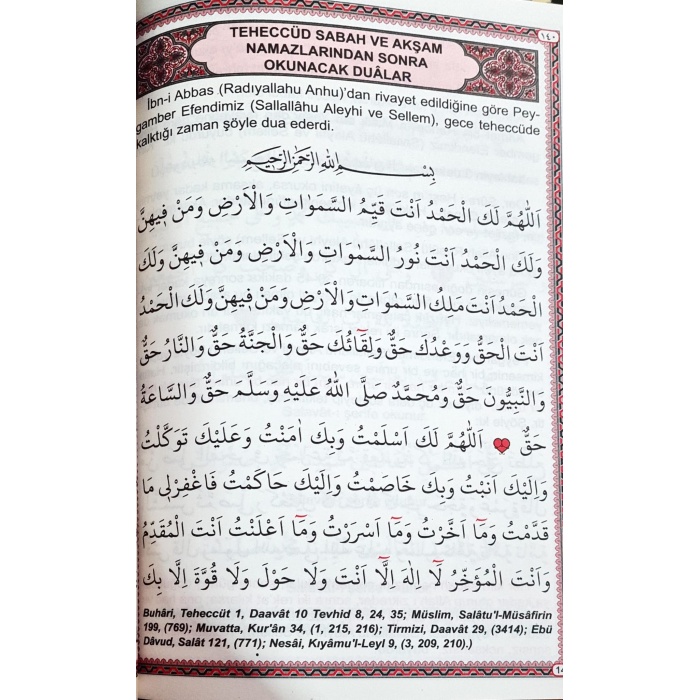 ١٤٠
TEHECCÜD SABAH VE AKŞAM
NAMAZLARINDAN SONRA
OKUNACAK DUÂLAR
İbn-i Abbas (Radıyallahu Anhu)'dan rivayet edildiğine göre Pey-
gamber Efendimiz (Sallallâhu Aleyhi ve Sellem), gece teheccüde
kalktığı zaman şöyle dua ederdi.
بِسْمِ اللهِ الرَّحْمٰنِ الرَّحِيمِ
اَللّٰهُمَّ لَكَ الْحَمْدُ اَنْتَ قَيِّمُ السَّمٰوَاتِ وَالْاَرْضِ وَمَنْ فِيهِنَّ
وَلَكَ الْحَمْدُ اَنْتَ نُورُ السَّمٰوَاتِ وَالْاَرْضِ وَمَنْ فِيهِنَّ وَلَكَ
الْحَمْدُ اَنْتَ مَلِكُ السَّمٰوَاتِ وَالْاَرْضِ وَمَنْ فِيهِنَّ وَلَكَ الْحَمْدُ
اَنْتَ الْحَقُّ وَوَعْدُكَ حَقٌّ وَلِقَٓائُكَ حَقٌّ وَالْجَنَّةُ حَقٌّ وَالنَّارُ حَقٌّ
وَالنَّبِيُّونَ حَقٌّ وَمُحَمَّدٌ صَلَّى اللّٰهُ عَلَيْهِ وَسَلَّمَ حَقٌّ وَالسَّاعَةُ
حَقٌّ اَللّٰهُمَّ لَكَ اَسْلَمْتُ وَبِكَ اٰمَنْتُ وَعَلَيْكَ تَوَكَّلْتُ
وَاِلَيْكَ اَنَبْتُ وَبِكَ خَاصَمْتُ وَاِلَيْكَ حَاكَمْتُ فَاغْفِرْلِى مَا
قَدَّمْتُ وَمَٓا اَخَّرْتُ وَمَٓا اَسْرَرْتُ وَمَٓا اَعْلَنْتُ اَنْتَ الْمُقَدِّمُ
وَاَنْتَ الْمُؤَخِّرُ لَٓا اِلٰهَ اِلَّٓا اَنْتَ وَلَا حَوْلَ وَلَا قُوَّةَ اِلَّا بِكَ
Buhâri, Teheccüt 1, Daavât 10 Tevhid 8, 24, 35; Müslim, Salâtu'l-Müsâfirin
199, (769); Muvatta, Kur'ân 34, (1, 215, 216); Tirmizi, Daavât 29, (3414); Ebü
Dâvud, Salât 121, (771); Nesâi, Kıyâmu'l-Leyl 9, (3, 209, 210).)